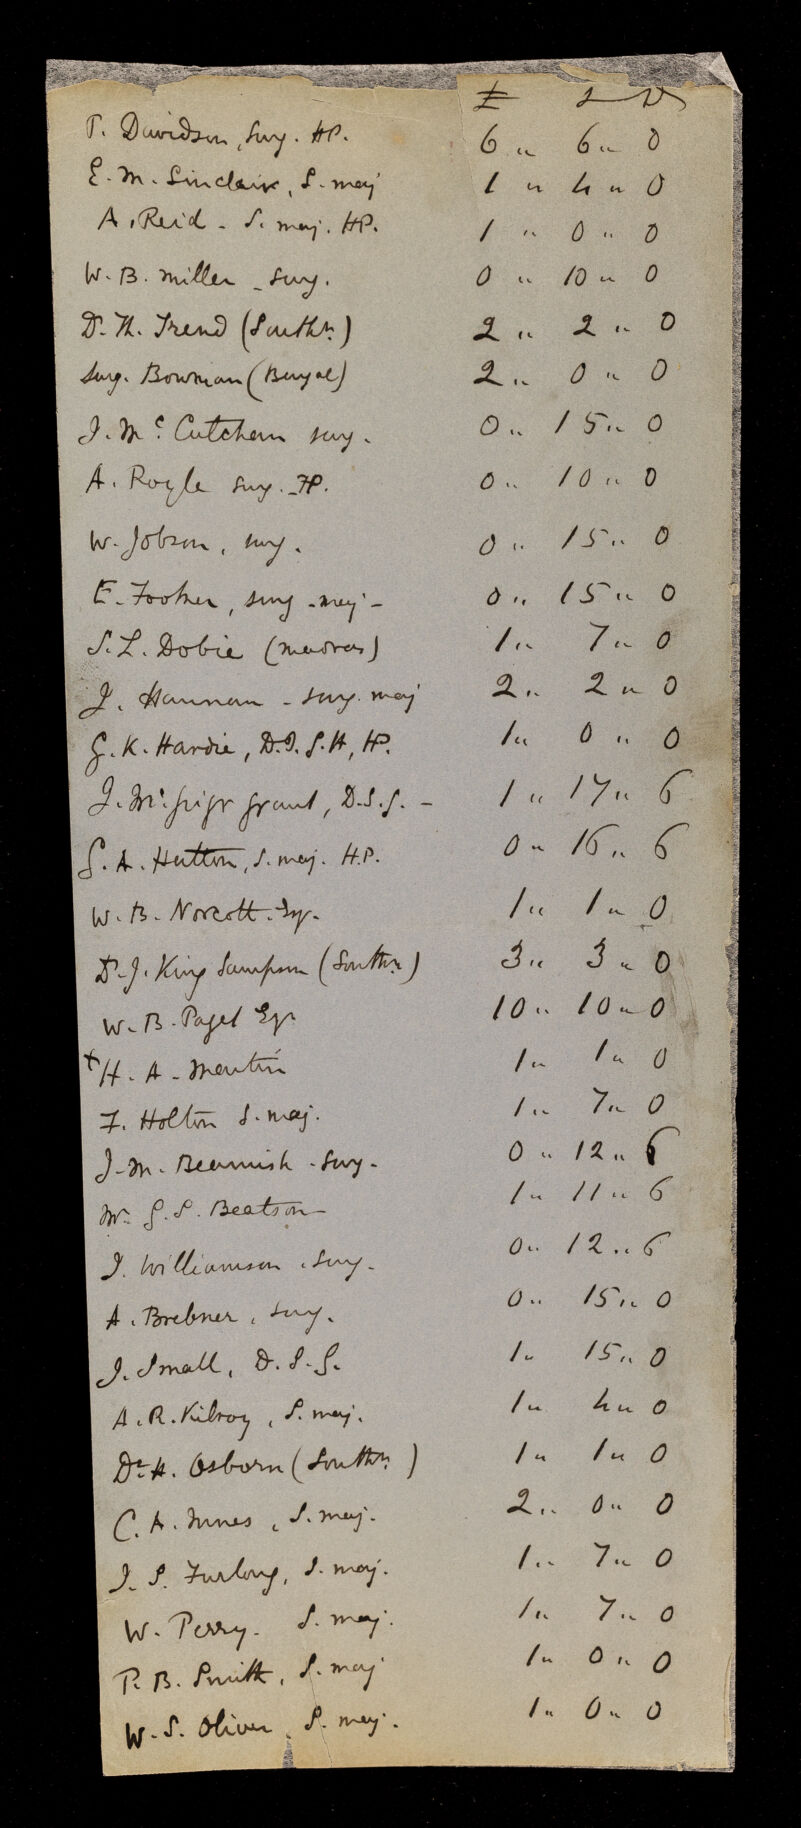 £ S D
T. Davidson, Surg. HP. 6 " 6 " 0
E. M. Sinclair, S. maj 1 " 4 " 0
A. Reid - S. maj. HP. 1 " 0 " 0
W. B. Miller - Surg. 0 " 10 " 0
Dr. Th. Trend (Southn.) 2 " 2 " 0
Surg. Bowman (Bengal) 2 " 0 " 0
J. Mc. Cutchen surg. 0 " 15 " 0
A. Royle surg. HP. 0 " 10 " 0
W. Jobson, surg. 0 " 15 " 0
E. Footner, surg - maj - 0 " 15 " 0
S. L. Dobie (Madras) 1 " 7 " 0
J. Hannan - surg. maj 2 " 2 " 0
G. K. Hardie, D.I.G.H, HP. 1 " 0 " 0
J. Mc. Grigr Grant, D.S.G. - 1 " 17 " 6
G. A. Hutton, S. maj. H.P. 0 " 16 " 6
W. B. Norcott. Esq. 1 " 1 " 0
Dr. J. King Sampson (Southn.) 3 " 3 " 0
W. B. Paget Esqr 10 " 10 " 0
+ H. A. Mentin 1 " 1 " 0
F. Holton S. maj. 1 " 7 " 0
J. M. Beamish - Surg. 0 " 12 " 6
Mr. G. S. Beatson 1 " 11 " 6
J. Williamson, surg. 0 " 12 " 6
A. Brebner, surg. 0 " 15 " 0
J. Small, D.S.G. 1 " 15 " 0
A. R. Kilroy, S. maj. 1 " 4 " 0
Dr. H. Osborn (Southn.) 1 " 1 " 0
C. A. Innes, S. maj. 2 " 0 " 0
J. S. Furlong, S. maj. 1 " 7 " 0
W. Perry. S. maj. 1 " 7 " 0
P. B. Smith, S. maj 1 " 0 " 0
W. S. Oliver, S. maj. 1 " 0 " 0